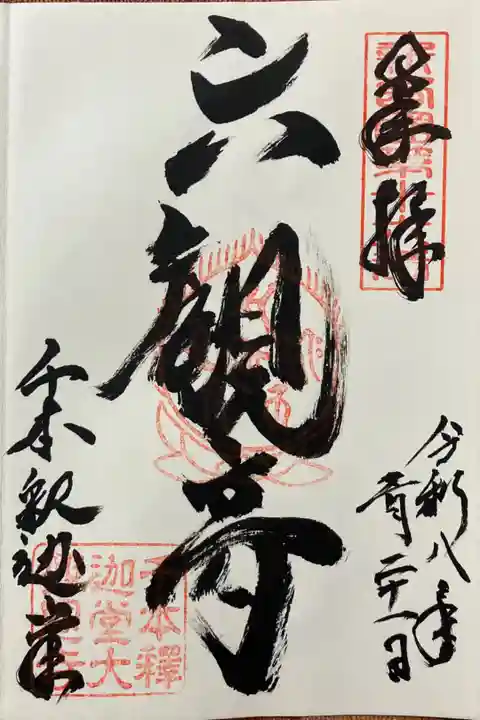 奉拝
六観音
令和八年
二十一日
千本釈迦堂
千本釋
迦堂大
報恩寺